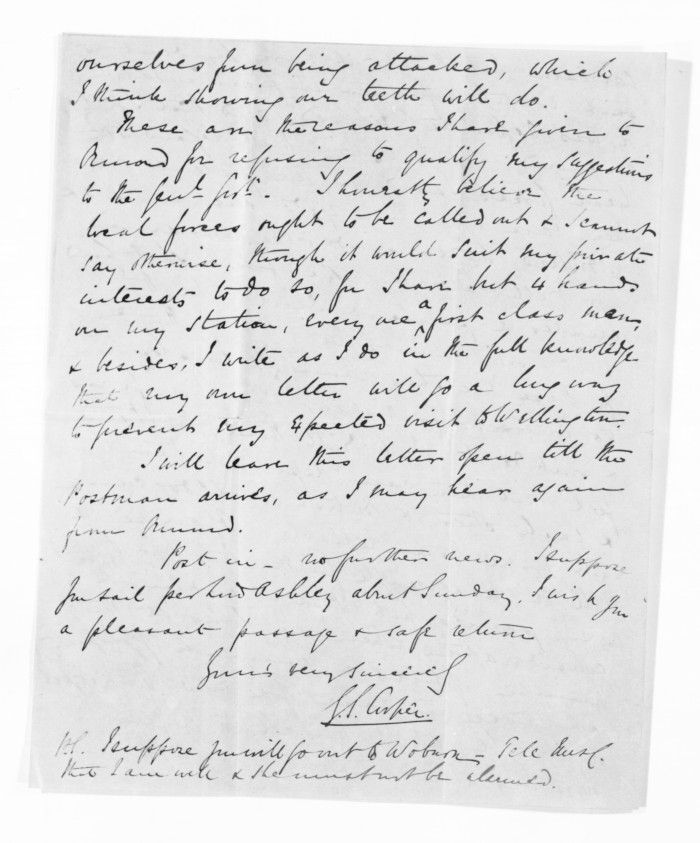 ourselves from being attacked, which
I think showing our teeth will do.
These are the reasons I have given to
Ormond for refusing to qualify my suggestions
to the Genl. Govt. I honestly believe the
local forces ought to be called out & I cannot
say otherwise, though it would suit my private
interests to do so, for I have but 4 hands
on my station, every one a first class man,
& besides, I write as I do in the full knowledge
that my own letter will go a long way
to prevent my expected visit to Wellington.
I will leave this letter open till the
Postman arrives, as I may hear again
from Ormond.
Post in – no further news. I suppose
you sail per Lord Ashley about Sunday. I wish you
a pleasant passage & safe return
Yours very sincerely
G.S. Cooper.
P.S. I suppose you will go out to Woburn – Tell Mrs C.
that I am well & she must not be alarmed.